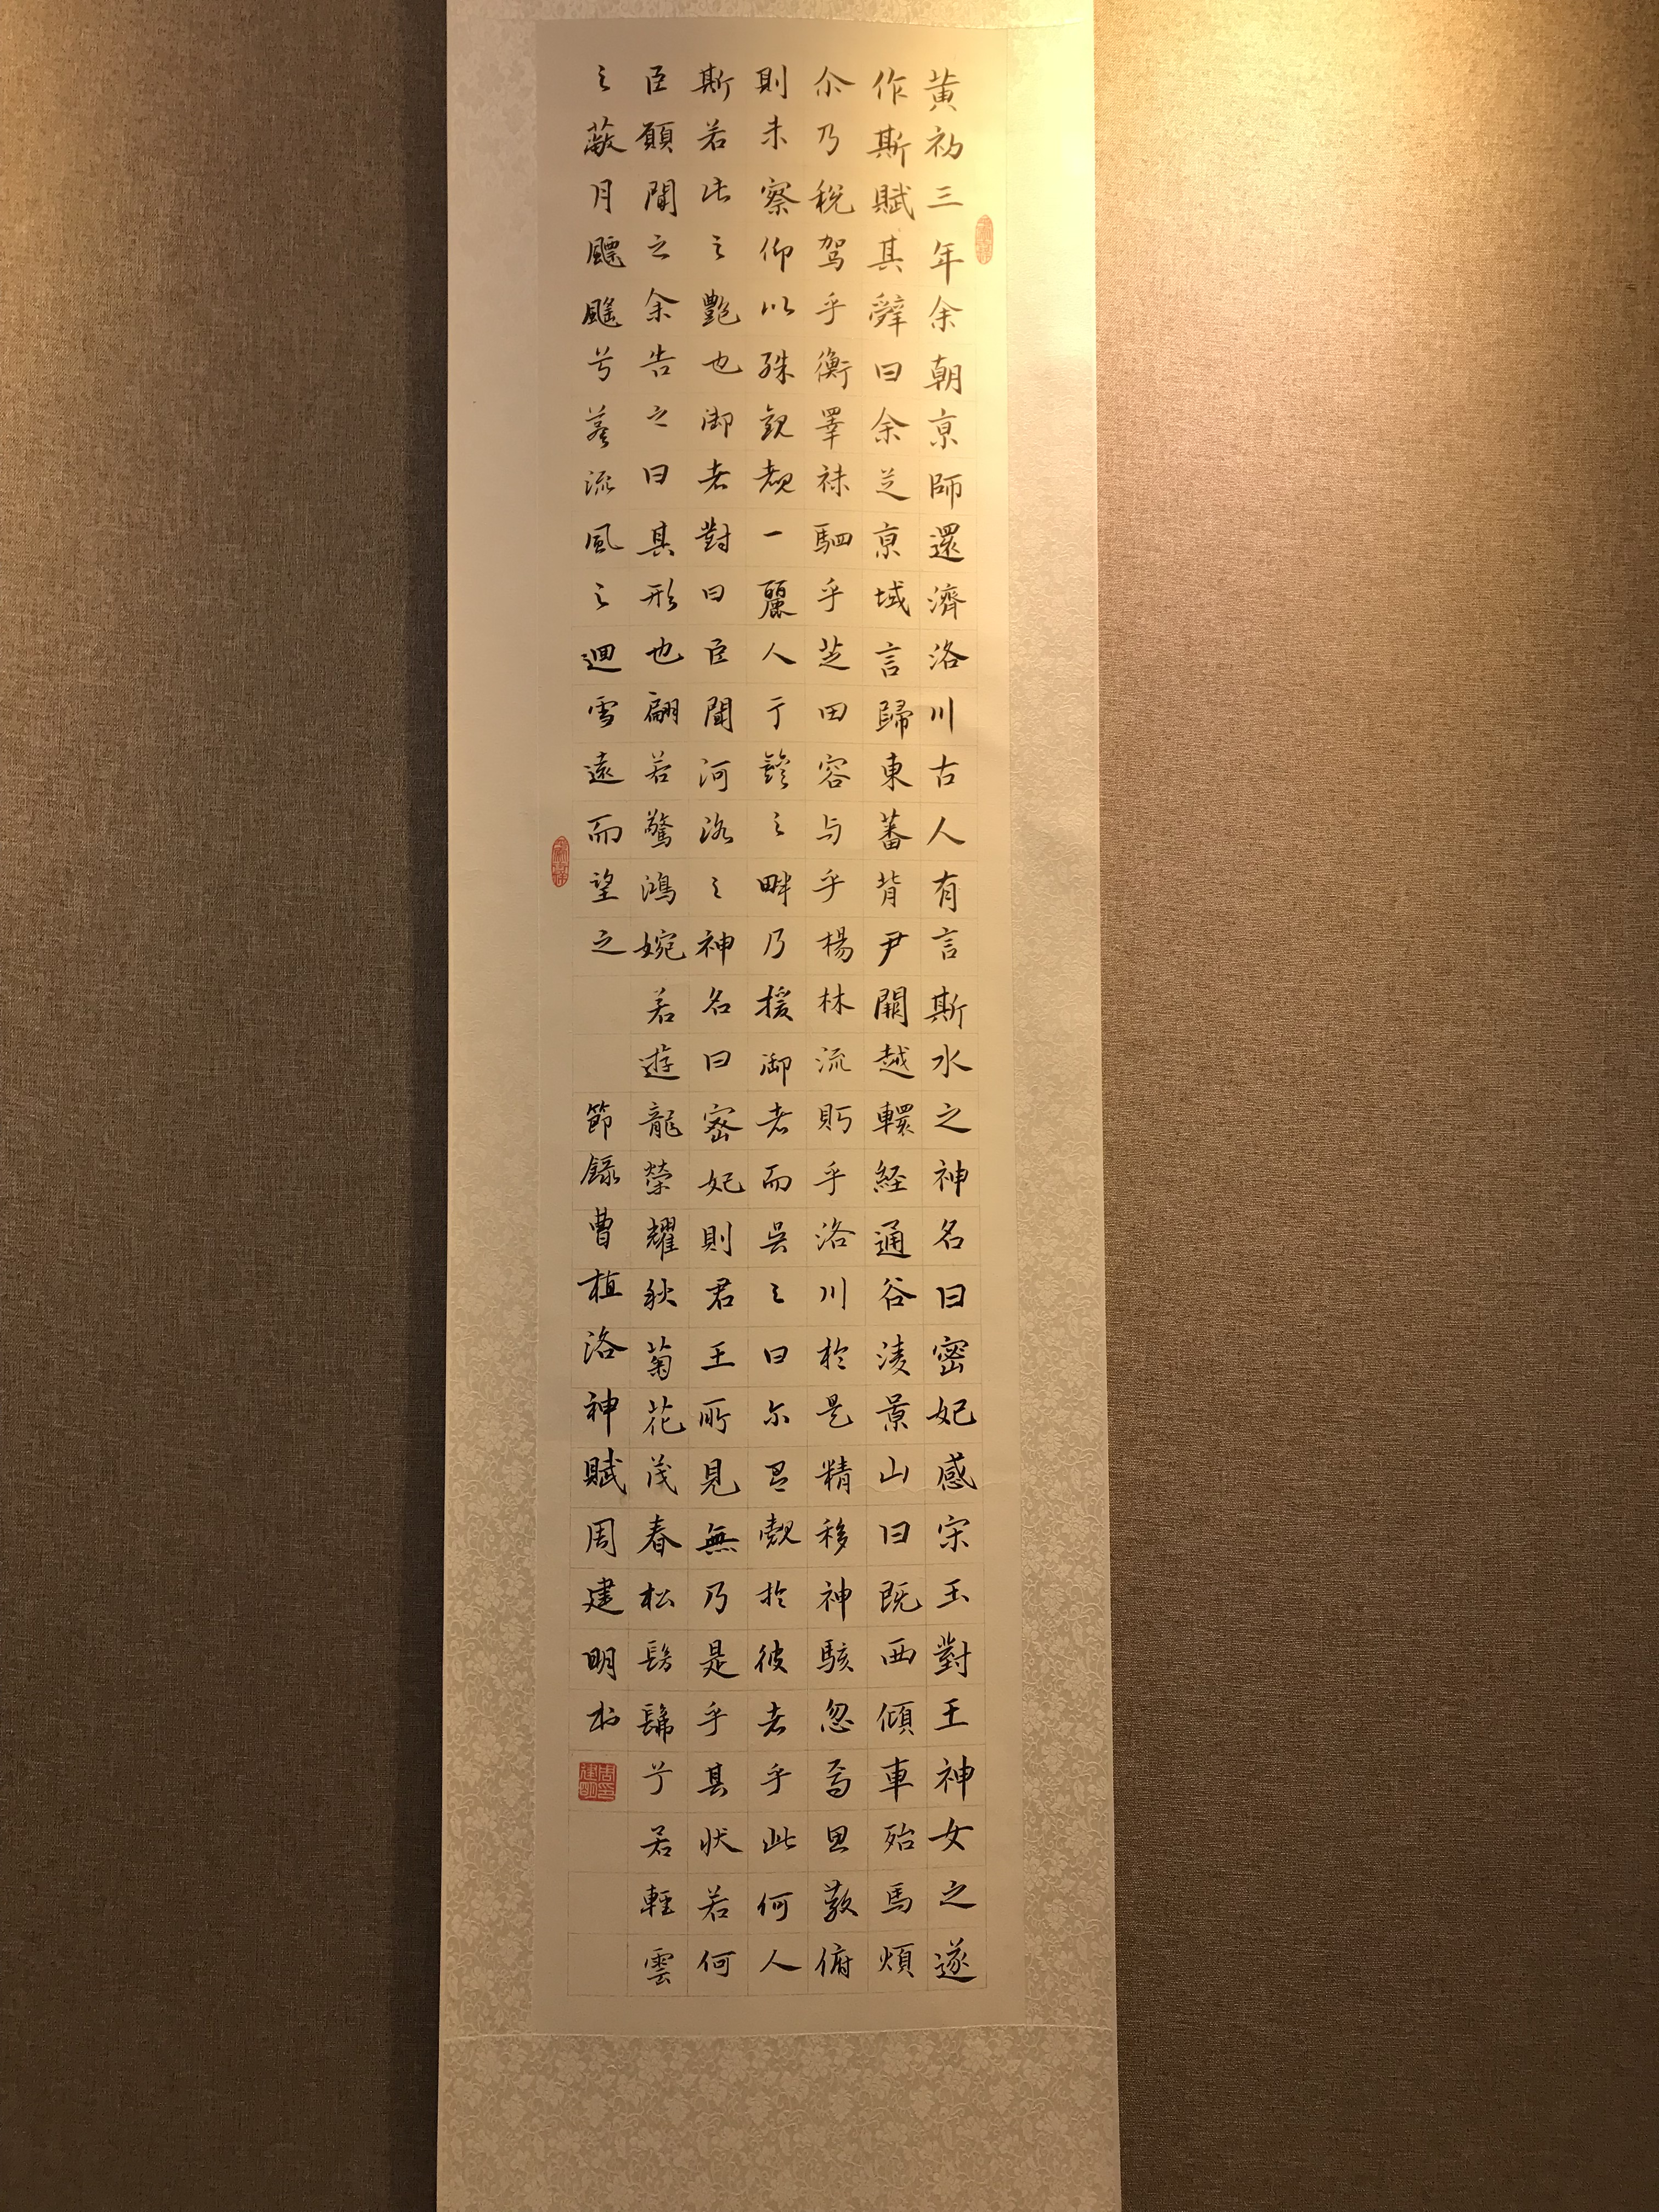 黄初三年余朝京師還濟洛川古人有言斯水之神名曰宓妃感宋玉對王神女之遂
作斯賦其辭曰余從京域言歸東蕃背尹闕越轘経通谷淩景山日既西傾車殆馬煩
尒乃税駕乎衡睪袜駟乎芝田容与乎楊林流眄乎洛川於是精移神駭忽焉思散俯
則未察仰以殊觀覩一麗人于巖之畔乃援御者而告之曰尔有覿於彼者乎此何人
斯若此之艷也御者對曰臣聞河洛之神名曰宓妃則君王所見無乃是乎其狀若何
臣願聞之余告之曰其形也翩若驚鴻婉若遊龍榮耀秋菊花茂春松髣髴兮若輕雲
之蔽月飄颻兮若流風之迴雪遠而望之 節録曹植洛神賦周建明书
周建明印